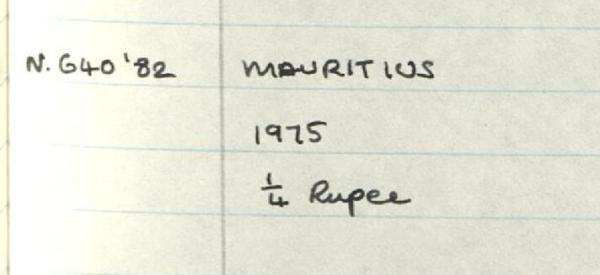 N. 640 '82 MAURITIUS
1975
1/4 Rupee